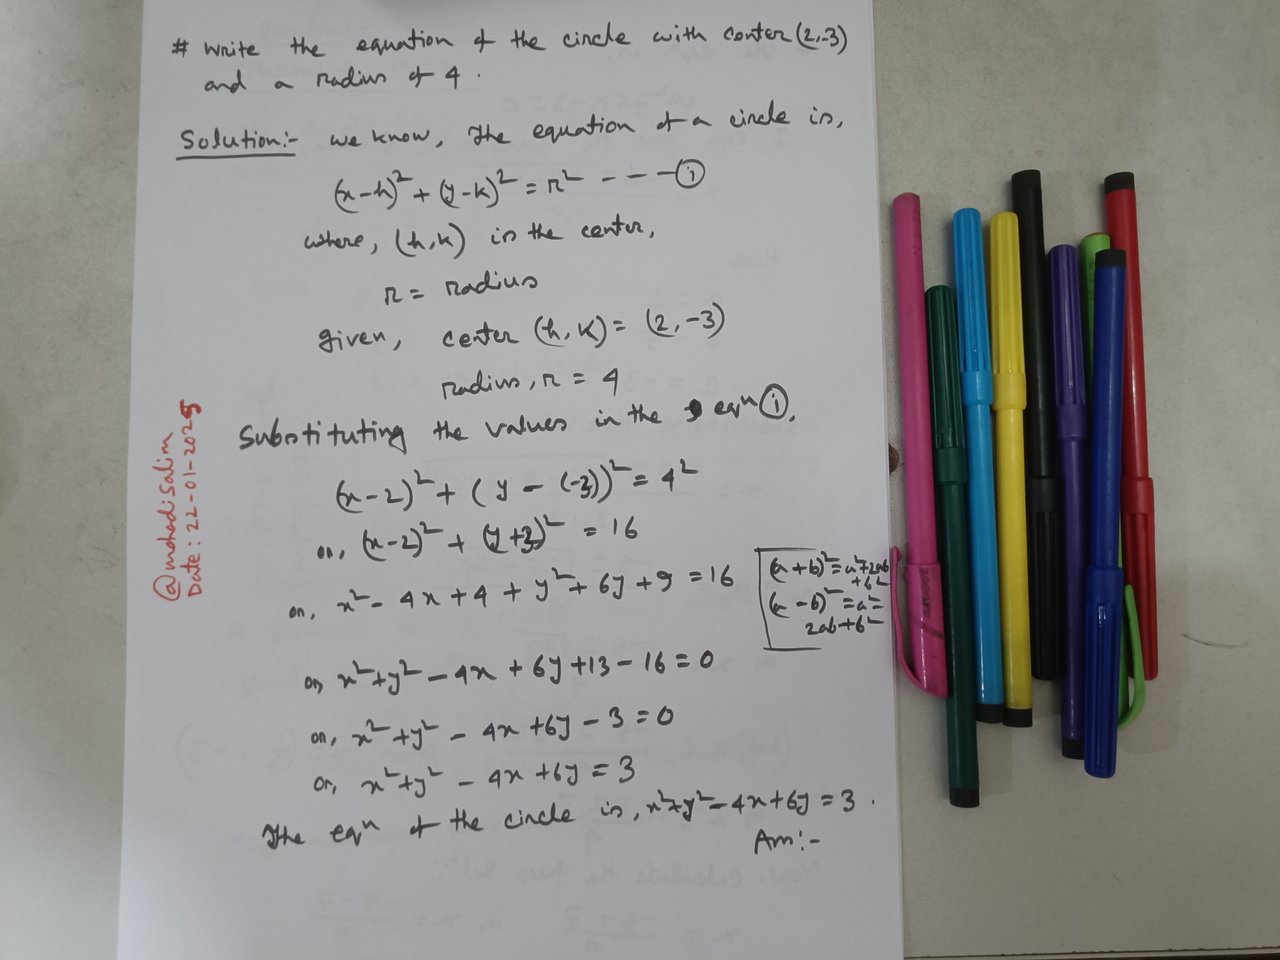 # Write the equation of the circle with center (2,-3)
and a radius of 4.
Solution:- we know, The equation of a circle is,
(x-h)² + (y-k)² = r² - - - (i)
where, (h,k) is the center,
r = radius
given, center (h,k) = (2,-3)
radius, r = 4
Substituting the values in the eqⁿ (i),
(x-2)² + (y - (-3))² = 4²
or, (x-2)² + (y+3)² = 16
or, x² - 4x + 4 + y² + 6y + 9 = 16
(a+b)² = a²+2ab
+b²
(a-b)² = a²-
2ab+b²
or, x²+y² - 4x + 6y + 13 - 16 = 0
or, x²+y² - 4x + 6y - 3 = 0
or, x²+y² - 4x + 6y = 3
The eqⁿ of the circle is, x²+y² - 4x + 6y = 3.
Ans:-
@mohadisalim
Date: 22-01-2025